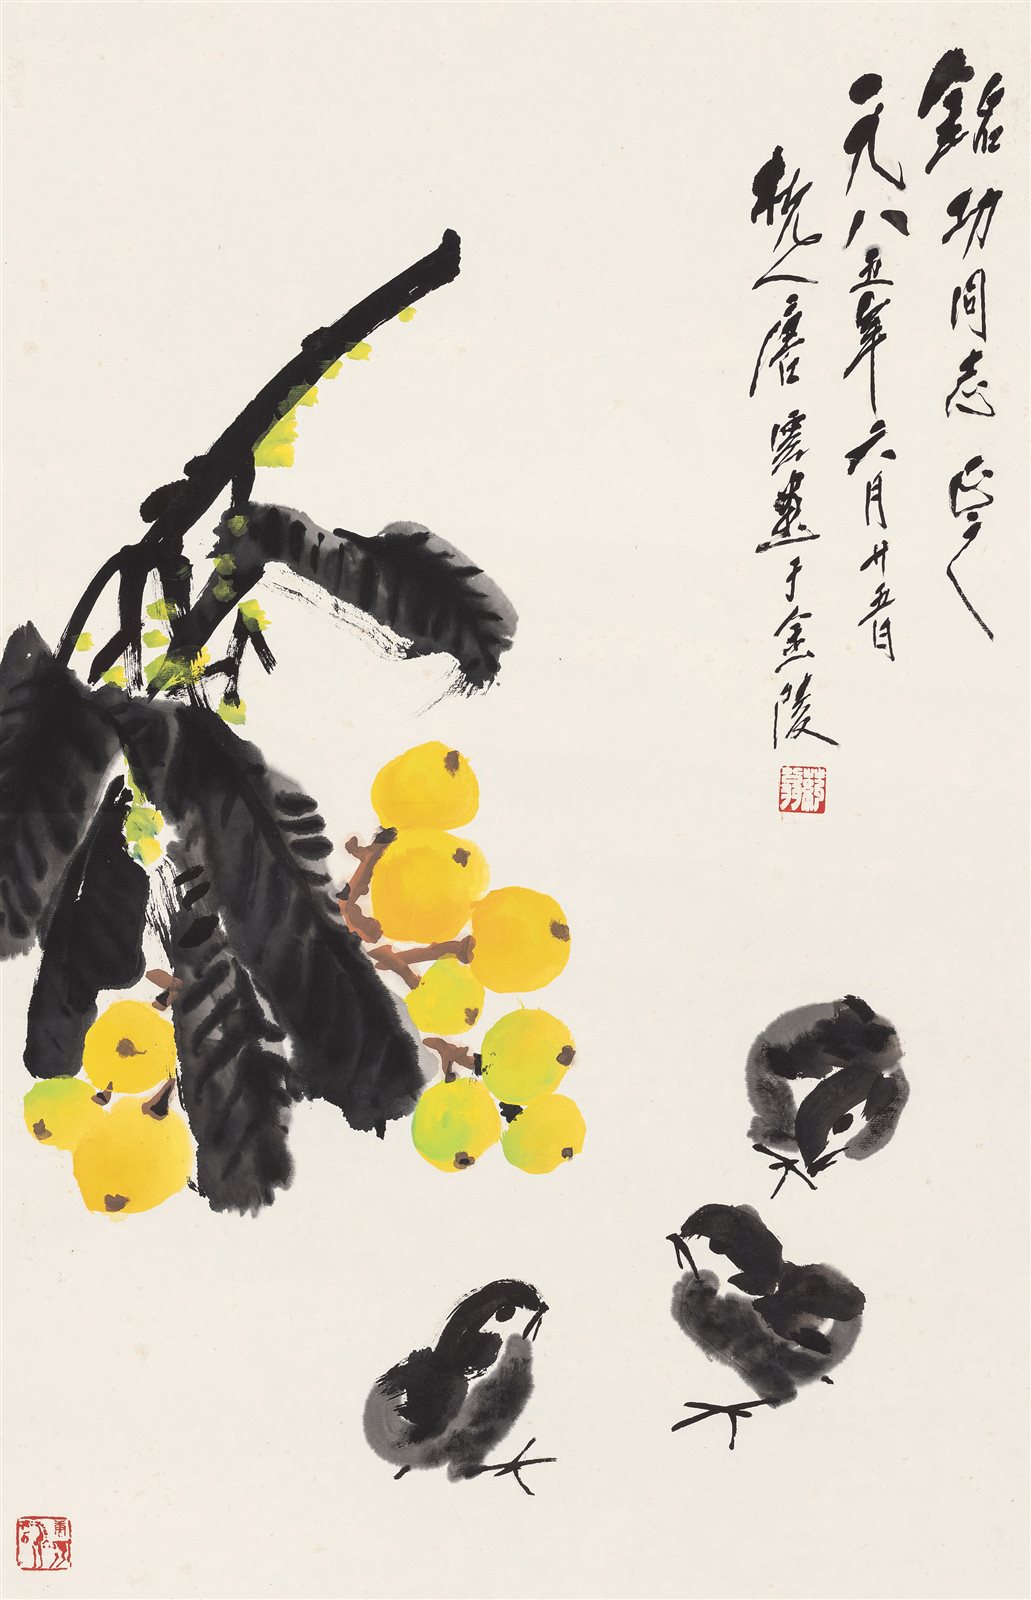 铭功同志正之
一九八五年六月廿五日
杭人唐雲畫于金陵